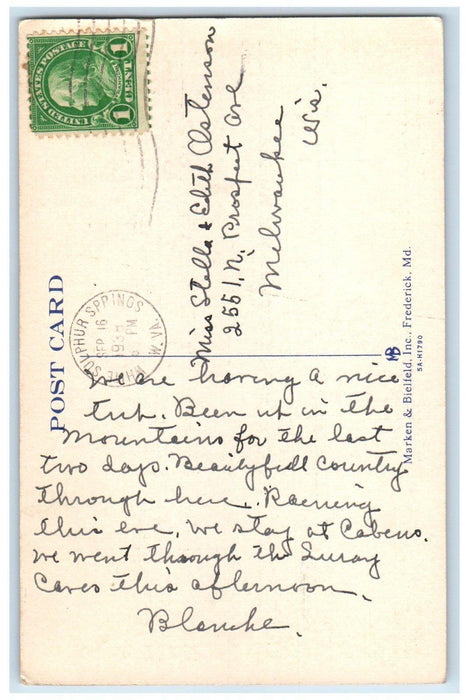 UNITED STATES POSTAGE
1 CENT 1
WHITE SULPHUR SPRINGS
W. VA.
SEP 16
PM
POST CARD
Miss Stella & Edith
2551, N. Prospect Ave
Milwaukee
Wis.
Marken & Bielfeld, Inc., Frederick, Md.
5A-H1790
We are having a nice
trip. Been up in the
Mountains for the last
two days. Beautyfull Country
through here. Raening
this eve, we stay at Cabens.
we went through the Luray
Caves this afternoon.
Blanche.